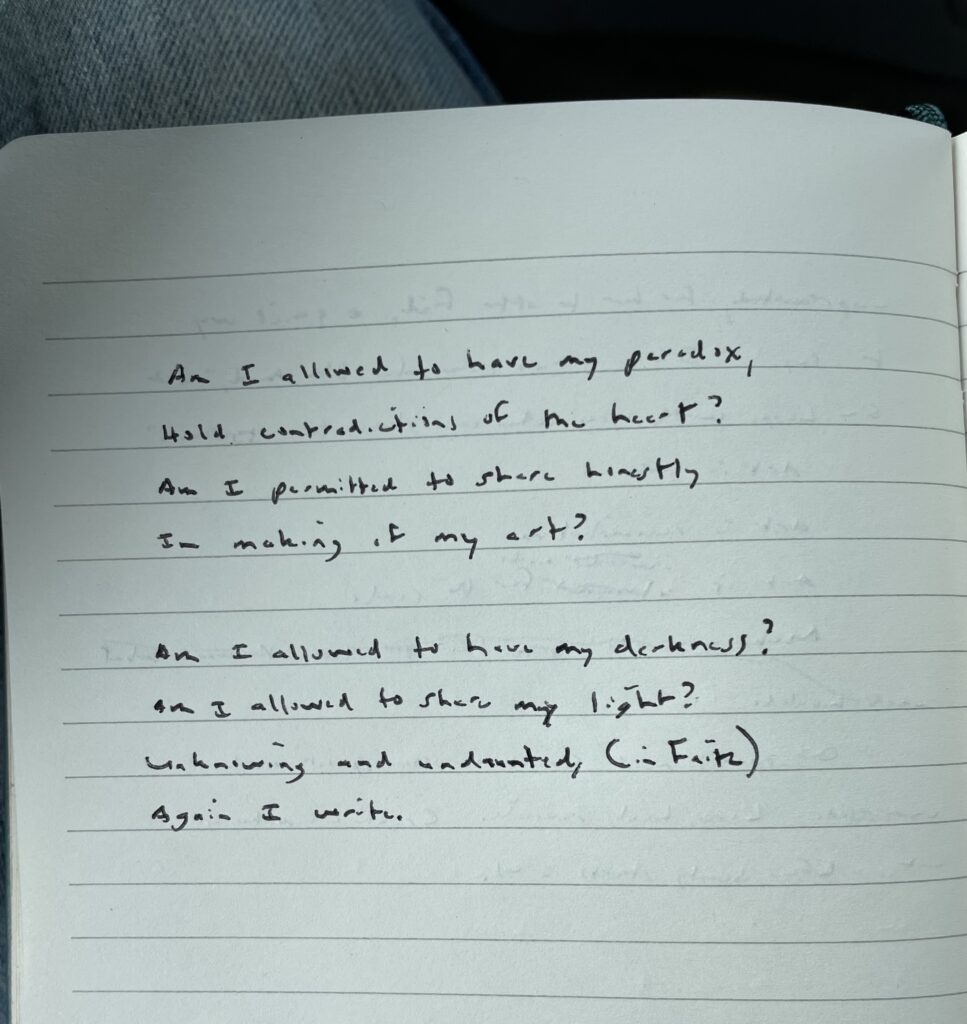 Am I allowed to have my paradox,
Hold contradictions of the heart?
Am I permitted to share honestly
In making of my art?
Am I allowed to have my darkness?
Am I allowed to share my light?
Unknowing and undaunted, (in Faith)
Again I write.